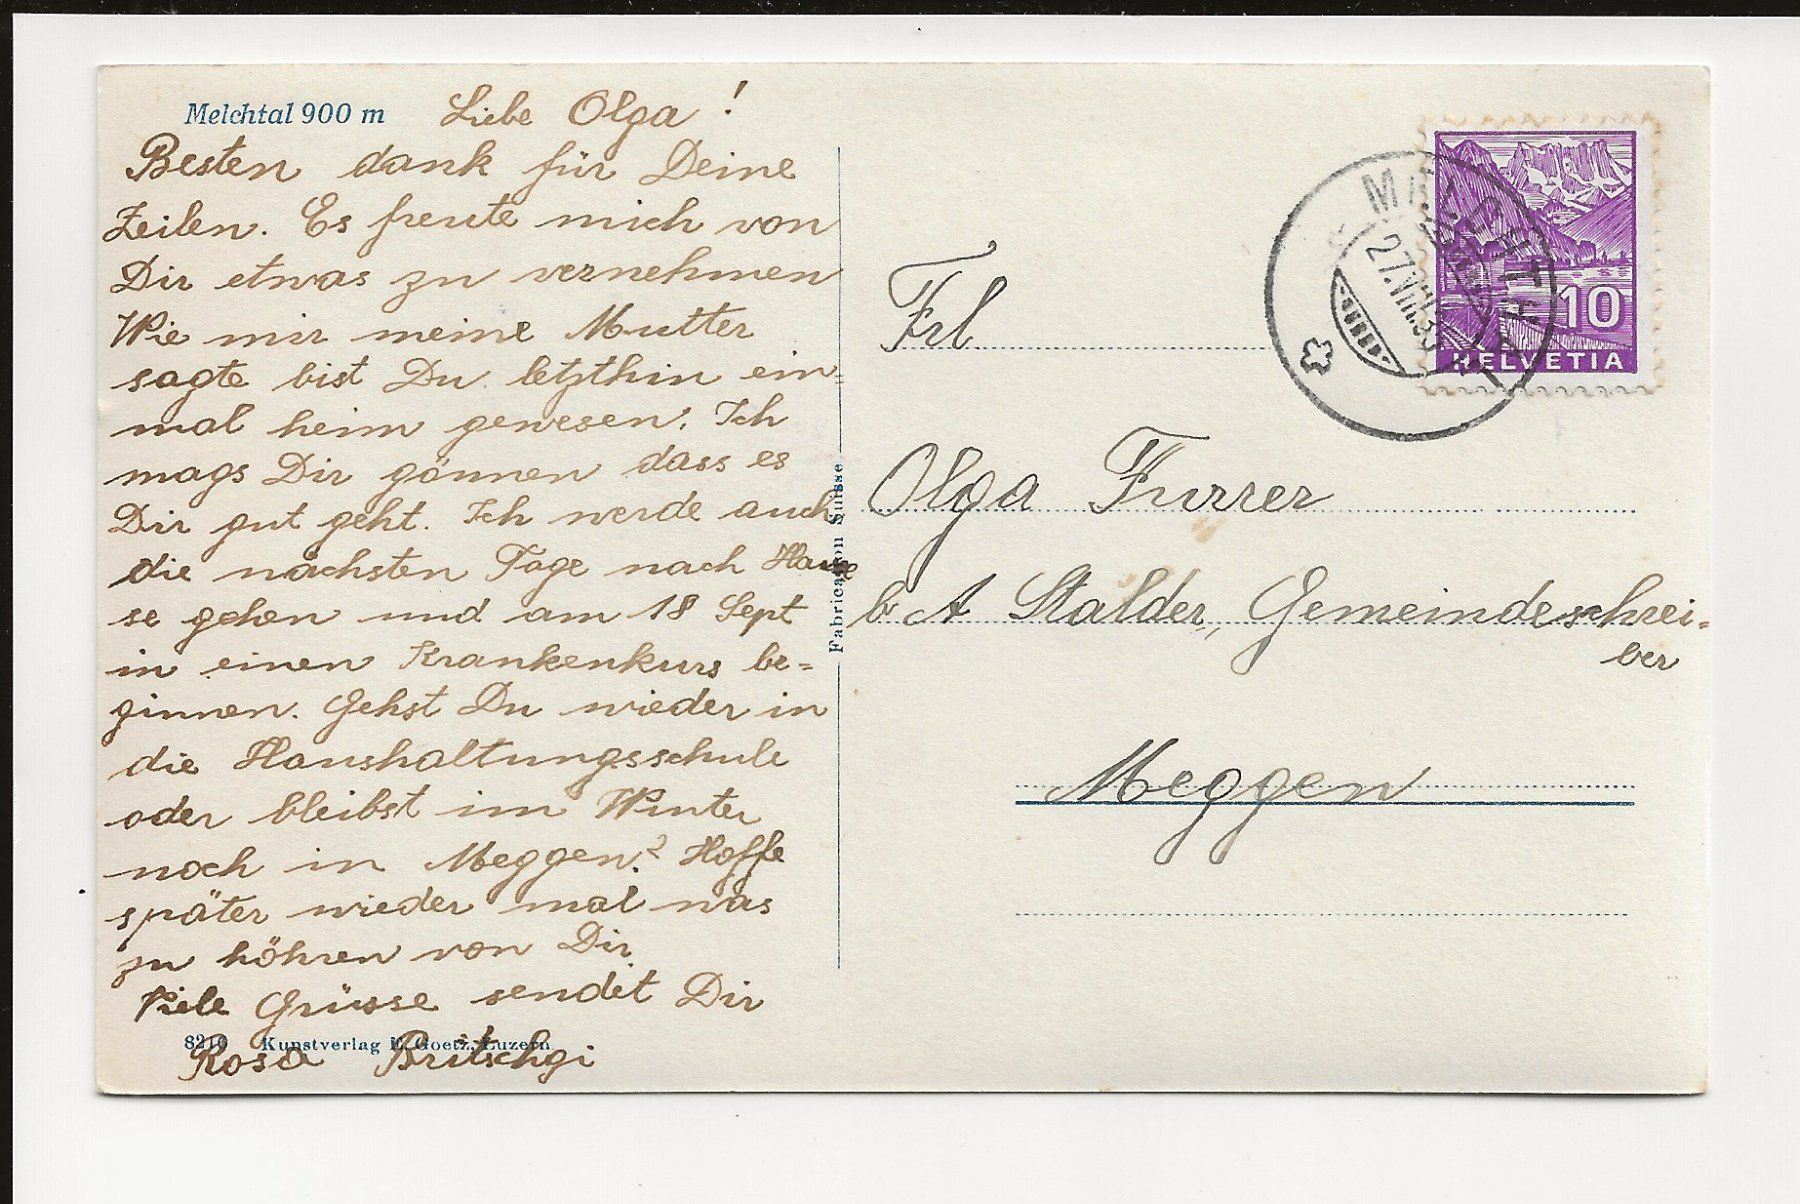 Melchtal 900 m
Liebe Olga !
Besten dank für Deine
Zeilen. Es freute mich von
Dir etwas zu vernehmen
Wie mir meine Mutter
sagte bist Du letzthin ein=
mal heim gewesen. Ich
mags Dir gönnen dass es
Dir gut geht. Ich werde auch
die nächsten Tage nach Hau
se gehen und am 18 Sept
in einen Krankenkurs be=
ginnen. Gehst Du wieder in
die Haushaltungsschule
oder bleibst im Winter
noch in Meggen? Hoffe
später wieder mal was
zu höhren von Dir
Viele Grüsse sendet Dir
Rosa Britschgi
8210 Kunstverlag E. Goetz, Luzern
Fabrication Suisse
27.VIII.
10
HELVETIA
Frl
Olga Furrer
b A Stalder, Gemeindeschrei-
ber
Meggen